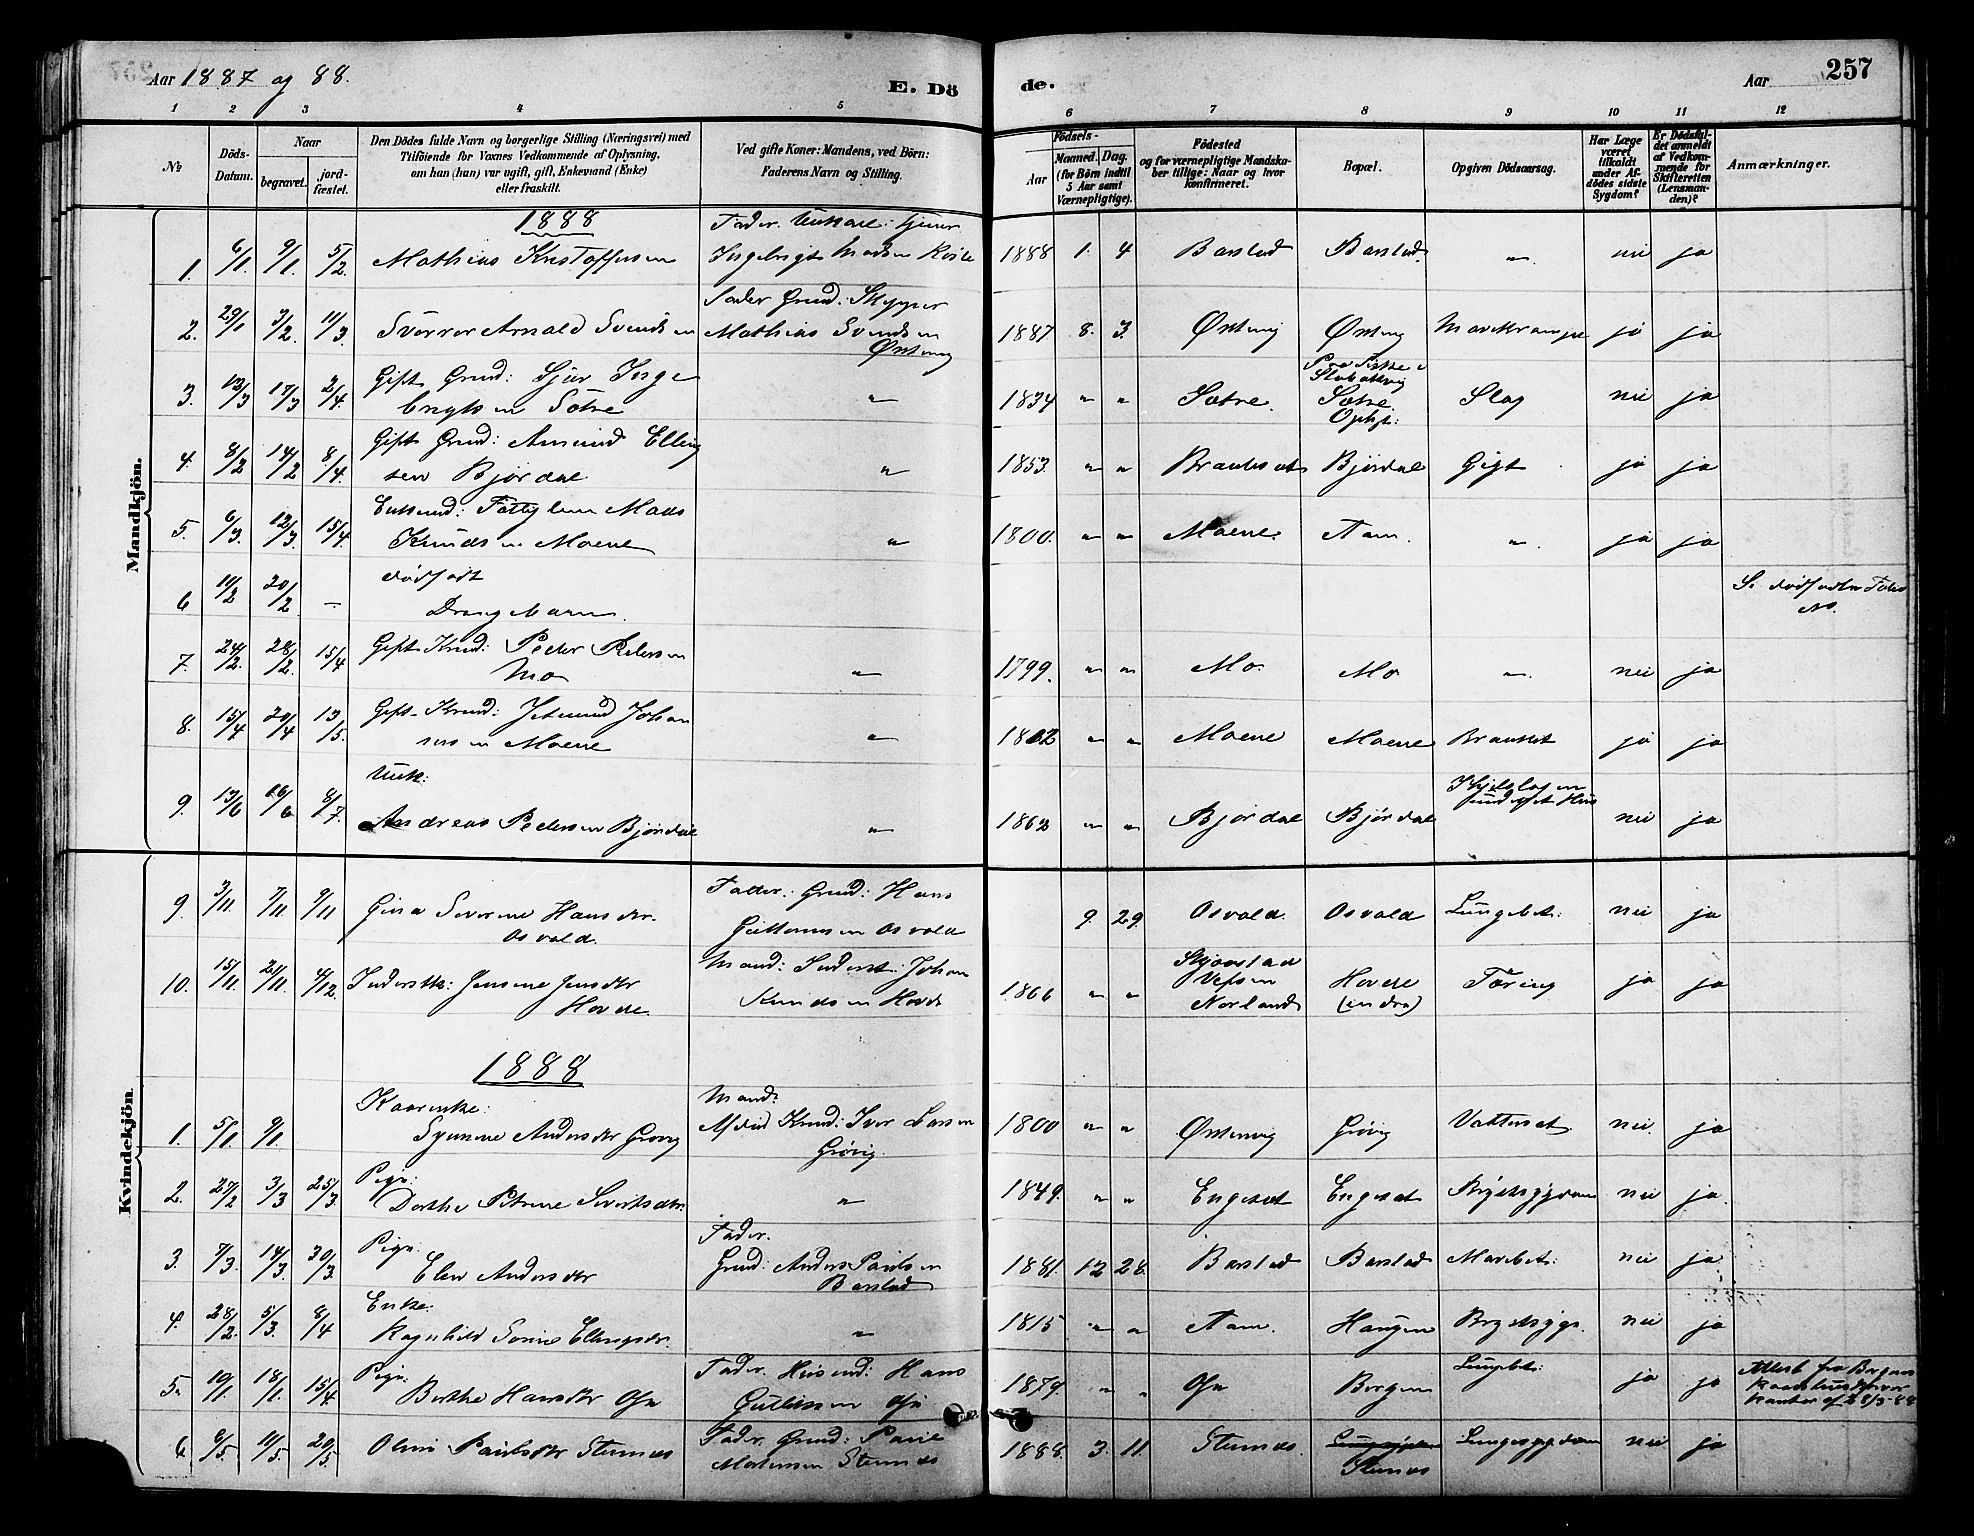 Aar 1887 og 88.
E. Dö
de.
Aar
257
1 2 3 4 5 6 7 8 9 10 11 12
№
Döds-Datum.
Naar
begravet.
jordfæstet.
Den Dödes fulde Navn og borgerlige Stilling (Næringsvei) med
Tilföiende for Voxnes Vedkommende af Oplysning,
om han (hun) var ugift, gift, Enkemand (Enke)
eller fraskilt.
Ved gifte Koner: Mandens, ved Börn:
Faderens Navn og Stilling.
Födsels-
Aar
Maaned. Dag.
(for Börn indtil
5 Aar samt
Værnepligtige).
Födested
og for værnepligtige Mandska-
ber tillige: Naar og hvor
konfirmeret.
Bopæl.
Opgiven Dödsaarsag.
Har Læge
været
tilkaldt
under Af-
dödes sidste
Sygdom?
Er Dödsfal-
det anmeldt
af Vedkom-
mende for
Skifteretten
(Lensman-
den)?
Anmærkninger.
Mandkjön.
1888
1. 6/1 9/1 5/2 Mathias Kristoffersen
Fader. Ungkarl: tjener
Ingebrigt Madsen
1888 1. 4 Barstad Barstad. " nei ja
2. 29/1 3/2 11/3. Sverrer Arnold Svendsen
Fader Grmd: Skipper
Mathias Svendsen
Østervig
1887 8. 3. Østervig Østervig Mavekrampe ja ja
3. 12/3 17/3 2/4. Gift Grmd: Sjur Inge
brigtsen Sætre "
1834 " " Sætre. Sætre. Slag nei ja
4. 8/2 14/2 8/4. Gift Grmd: Amund Elling
sen Bjørdal "
1853. " " Brauteset Bjørdal Gigt ja ja
5. 6/3. 12/3 15/4. Enkemd: Fattiglem Mads
Knudsen Moene "
1800. " " Moene. Aam. " ja ja
6 11/2 20/2 — dødfødt
Drengebarn
Se dødfødte
No.
7. 24/2. 28/2. 15/4 Gift Kmd: Peder Pedersen
Mo "
1799. " " Mo Mo " nei ja
8. 15/4 20/4 13/5. Gift Kmd: Jetmund Johan
nesen Moene "
1802 " " Moene Moene Brauket ja ja
9. 13/6 16/6 8/7. Ungk:
Andreas Pedersen Bjørdal "
1862 " " Bjørdal Bjørdal nei ja
Kvindekjön
9. 3/11. 7/11 9/11 Gina Severine Hansdtr.
Osvold.
Fader. Grmd: Hans
Guttormsen Osvold
9. 29. Osvold. Osvold Lungebet: nei ja
10. 15/11. 21/11. 4/12. Inderstk: Jensine Jensdtr
Hovde.
Mand: Inderst: Johan
Knudsen Hovde
1866 " " Vefsen Nordland Hovde
(indre) Tæring ja ja
1888
1. 5/1 9/1. Kaarenke:
Synneve Andersdtr Grøvig
Mand:
Afdød Kmd: Iver Larsen
Grøvig.
1800 " " Østervig Grøvig Vattersot. nei. ja
2. 27/2 3/3 25/3. Pige:
Dorthe Petrine Sivertsdtr. "
1849. " " Engeset Engeset Brystsygdom nei ja.
3. 7/3. 14/3. 30/3. Pige:
Elen Andersdtr
Fader.
Grmd: Anders Paulsen
Barstad
1881. 12 28. Barstad Barstad Mavebet: nei ja
4. 28/2. 5/3. 8/4 Enke:
Ragnhild Ellingsdtr. "
1815 " " Aam. Haugen Brystsyge. nei ja
5. 10/1. 18/1. 15/4 Pige:
Berthe Hansdtr Øye
Fader. Husmd: Hans
Gulliksen Øye
1879. " " Øye Bergen Lungebet: ja ja
Attest fra Bergens
af 28/3-88
6. 6/5. 11/5. 20/5. Oline Paulsdtr Steinnes
Fader. Grmd: Paul
Martinsen Steinnes
1888. 3. 11. Steinnes. Steinnes Lungesygdom nei ja